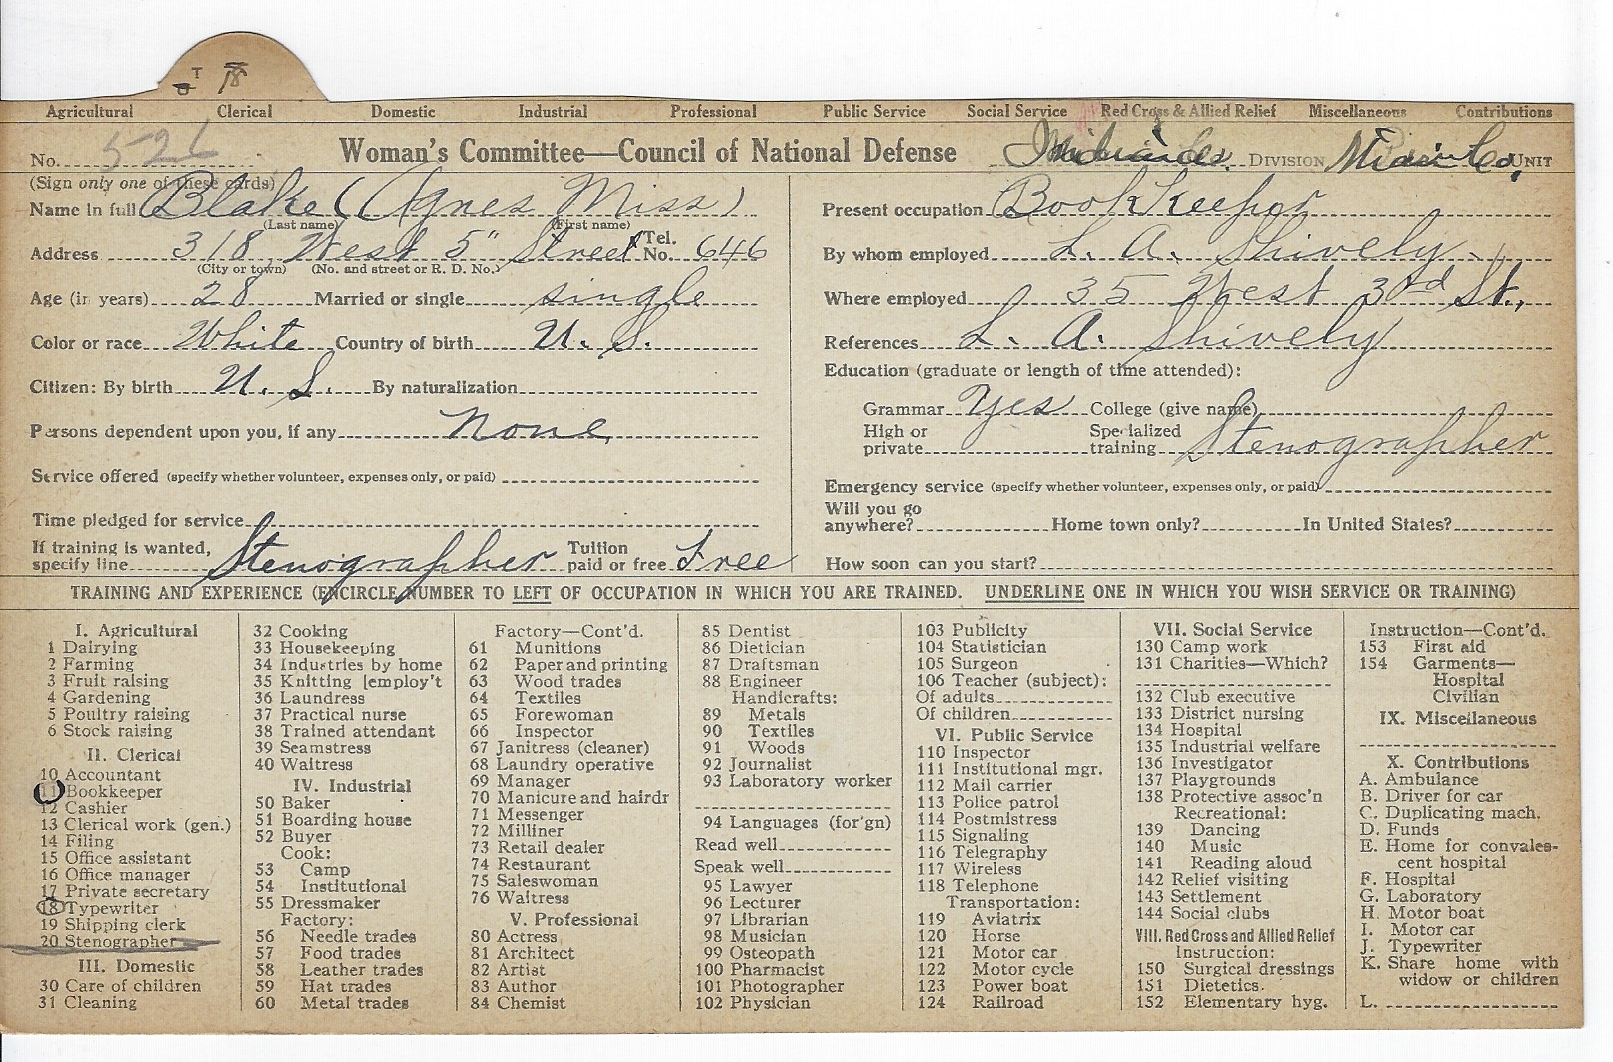 T 18
Agricultural Clerical Domestic Industrial Professional Public Service Social Service Red Cross & Allied Relief Miscellaneous Contributions
No. 526 Woman's Committee—Council of National Defense DIVISION Miami Co. UNIT
(Sign only one of these cards)
Name in full Blake (Agnes Miss)
(Last name) (First name)
Address 318 West 5" Street Tel. No. 646
(City or town) (No. and street or R. D. No.)
Age (in years) 28 Married or single single
Color or race White Country of birth U. S.
Citizen: By birth U. S. By naturalization
Persons dependent upon you, if any None
Service offered (specify whether volunteer, expenses only, or paid)
Time pledged for service
If training is wanted, specify line Stenographer Tuition paid or free Free
Present occupation BookKeeper
By whom employed L. A. Shively
Where employed 35 West 3rd St.,
References L. A. Shively
Education (graduate or length of time attended):
Grammar Yes College (give name)
High or private Specialized training Stenographer
Emergency service (specify whether volunteer, expenses only, or paid)
Will you go anywhere? Home town only? In United States?
How soon can you start?
TRAINING AND EXPERIENCE (ENCIRCLE NUMBER TO LEFT OF OCCUPATION IN WHICH YOU ARE TRAINED. UNDERLINE ONE IN WHICH YOU WISH SERVICE OR TRAINING)
I. Agricultural
1 Dairying
2 Farming
3 Fruit raising
4 Gardening
5 Poultry raising
6 Stock raising
II. Clerical
10 Accountant
11 Bookkeeper
12 Cashier
13 Clerical work (gen.)
14 Filing
15 Office assistant
16 Office manager
17 Private secretary
18 Typewriter
19 Shipping clerk
20 Stenographer
III. Domestic
30 Care of children
31 Cleaning
32 Cooking
33 Housekeeping
34 Industries by home
35 Knitting [employ't
36 Laundress
37 Practical nurse
38 Trained attendant
39 Seamstress
40 Waitress
IV. Industrial
50 Baker
51 Boarding house
52 Buyer
Cook:
53 Camp
54 Institutional
55 Dressmaker
Factory:
56 Needle trades
57 Food trades
58 Leather trades
59 Hat trades
60 Metal trades
Factory—Cont'd.
61 Munitions
62 Paper and printing
63 Wood trades
64 Textiles
65 Forewoman
66 Inspector
67 Janitress (cleaner)
68 Laundry operative
69 Manager
70 Manicure and hairdr
71 Messenger
72 Milliner
73 Retail dealer
74 Restaurant
75 Saleswoman
76 Waitress
V. Professional
80 Actress
81 Architect
82 Artist
83 Author
84 Chemist
85 Dentist
86 Dietician
87 Draftsman
88 Engineer
Handicrafts:
89 Metals
90 Textiles
91 Woods
92 Journalist
93 Laboratory worker
94 Languages (for'gn)
Read well
Speak well
95 Lawyer
96 Lecturer
97 Librarian
98 Musician
99 Osteopath
100 Pharmacist
101 Photographer
102 Physician
103 Publicity
104 Statistician
105 Surgeon
106 Teacher (subject):
Of adults
Of children
VI. Public Service
110 Inspector
111 Institutional mgr.
112 Mail carrier
113 Police patrol
114 Postmistress
115 Signaling
116 Telegraphy
117 Wireless
118 Telephone
Transportation:
119 Aviatrix
120 Horse
121 Motor car
122 Motor cycle
123 Power boat
124 Railroad
VII. Social Service
130 Camp work
131 Charities—Which?
132 Club executive
133 District nursing
134 Hospital
135 Industrial welfare
136 Investigator
137 Playgrounds
138 Protective assoc'n
Recreational:
139 Dancing
140 Music
141 Reading aloud
142 Relief visiting
143 Settlement
144 Social clubs
VIII. Red Cross and Allied Relief
Instruction:
150 Surgical dressings
151 Dietetics.
152 Elementary hyg.
Instruction—Cont'd.
153 First aid
154 Garments—
Hospital
Civilian
IX. Miscellaneous
X. Contributions
A. Ambulance
B. Driver for car
C. Duplicating mach.
D. Funds
E. Home for convales-
cent hospital
F. Hospital
G. Laboratory
H. Motor boat
I. Motor car
J. Typewriter
K. Share home with
widow or children
L.